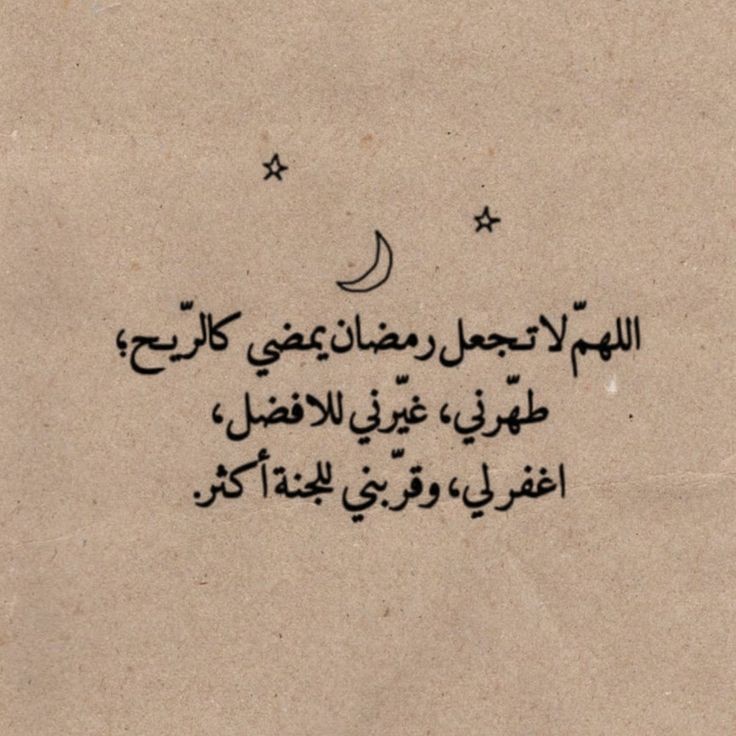 اللهمّ لا تجعل رمضان يمضي كالرّيح؛
طهّرني، غيّرني للافضل،
اغفر لي، وقرّبني للجنة أكثر.